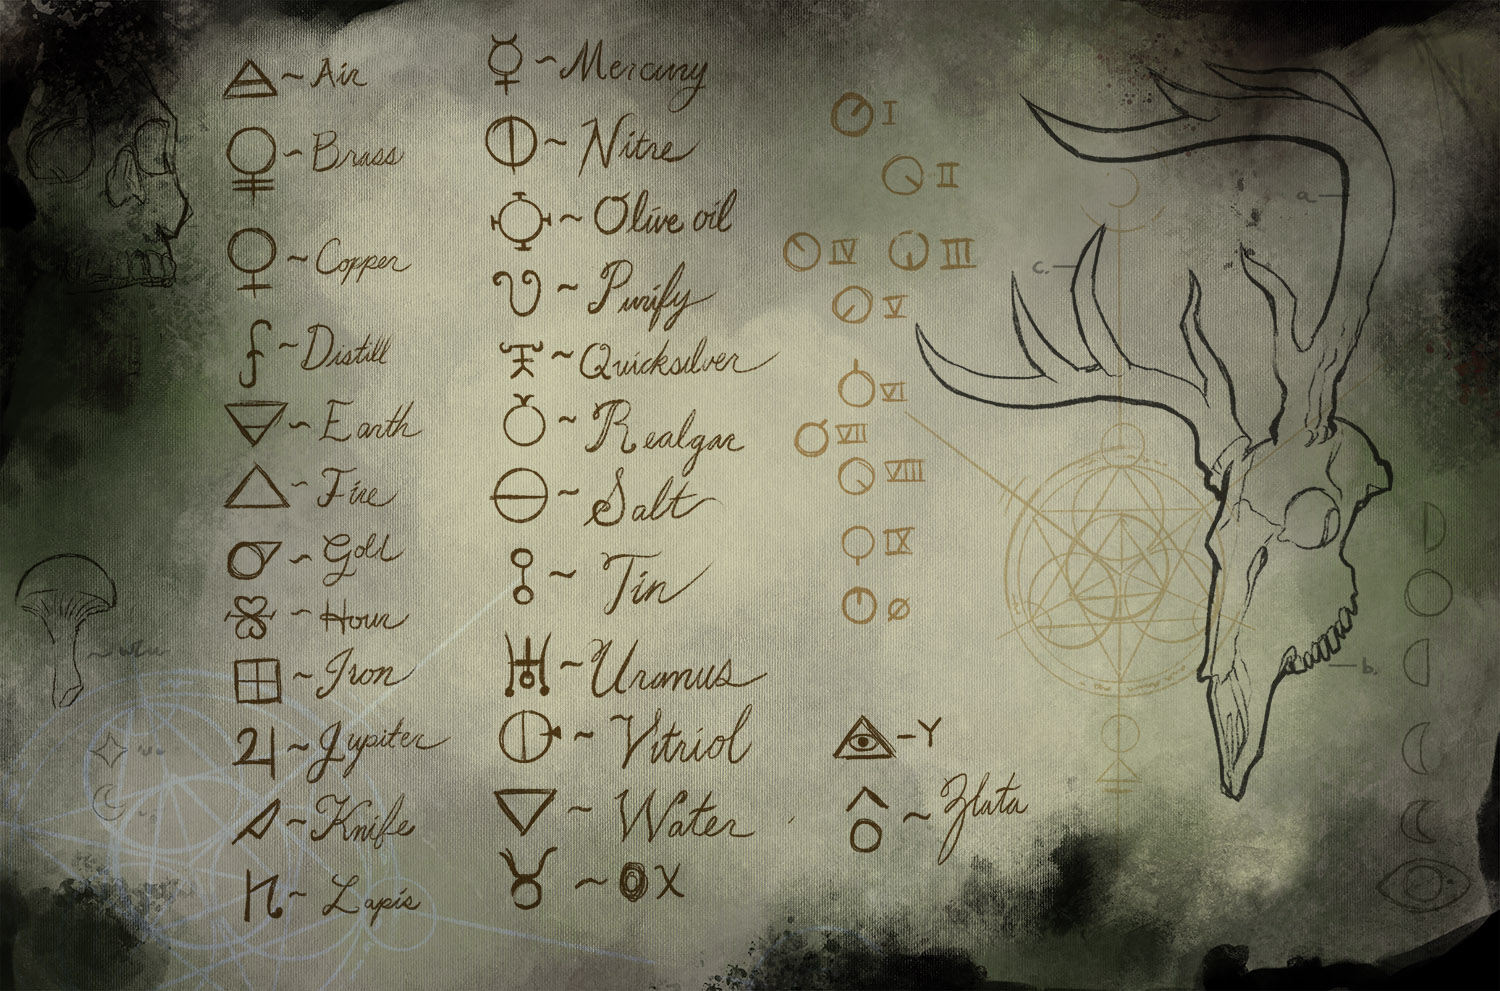 ~ Air
~ Brass
~ Copper
~ Distill
~ Earth
~ Fire
~ Gold
~ Hour
~ Iron
~ Jupiter
~ Knife
~ Lapis
~ Mercury
~ Nitre
~ Olive oil
~ Purify
~ Quicksilver
~ Realgar
~ Salt
~ Tin
~ Uranus
~ Vitriol
~ Water
~ OX
I
II
IV III
V
VI
VII
VIII
IX
ø
– Y
~ Zlata
a.
c.
b.